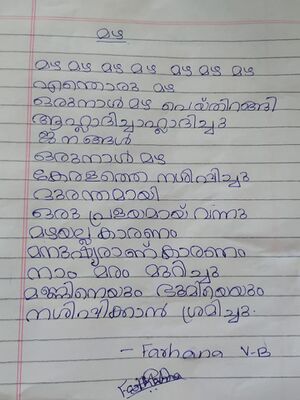 മഴ
മഴ മഴ മഴ മഴ മഴ മഴ മഴ
എന്തൊരു മഴ
ഒരുനാൾ മഴ പെയ്തിറങ്ങി
ആഹ്ലാദിച്ചാഹ്ലാദിച്ചു
ജനങ്ങൾ
ഒരുനാൾ മഴ
കേരളത്തെ നശിപ്പിച്ചു
ദുരന്തമായി
ഒരു പ്രളയമായ് വന്നു
മഴയല്ല കാരണം
മനുഷ്യരാണ് കാരണം
നാം മരം മുറിച്ചു
മണ്ണിനെയും ഭൂമിയെയും
നശിപ്പിക്കാൻ ശ്രമിച്ചു.
- Farhana V-B